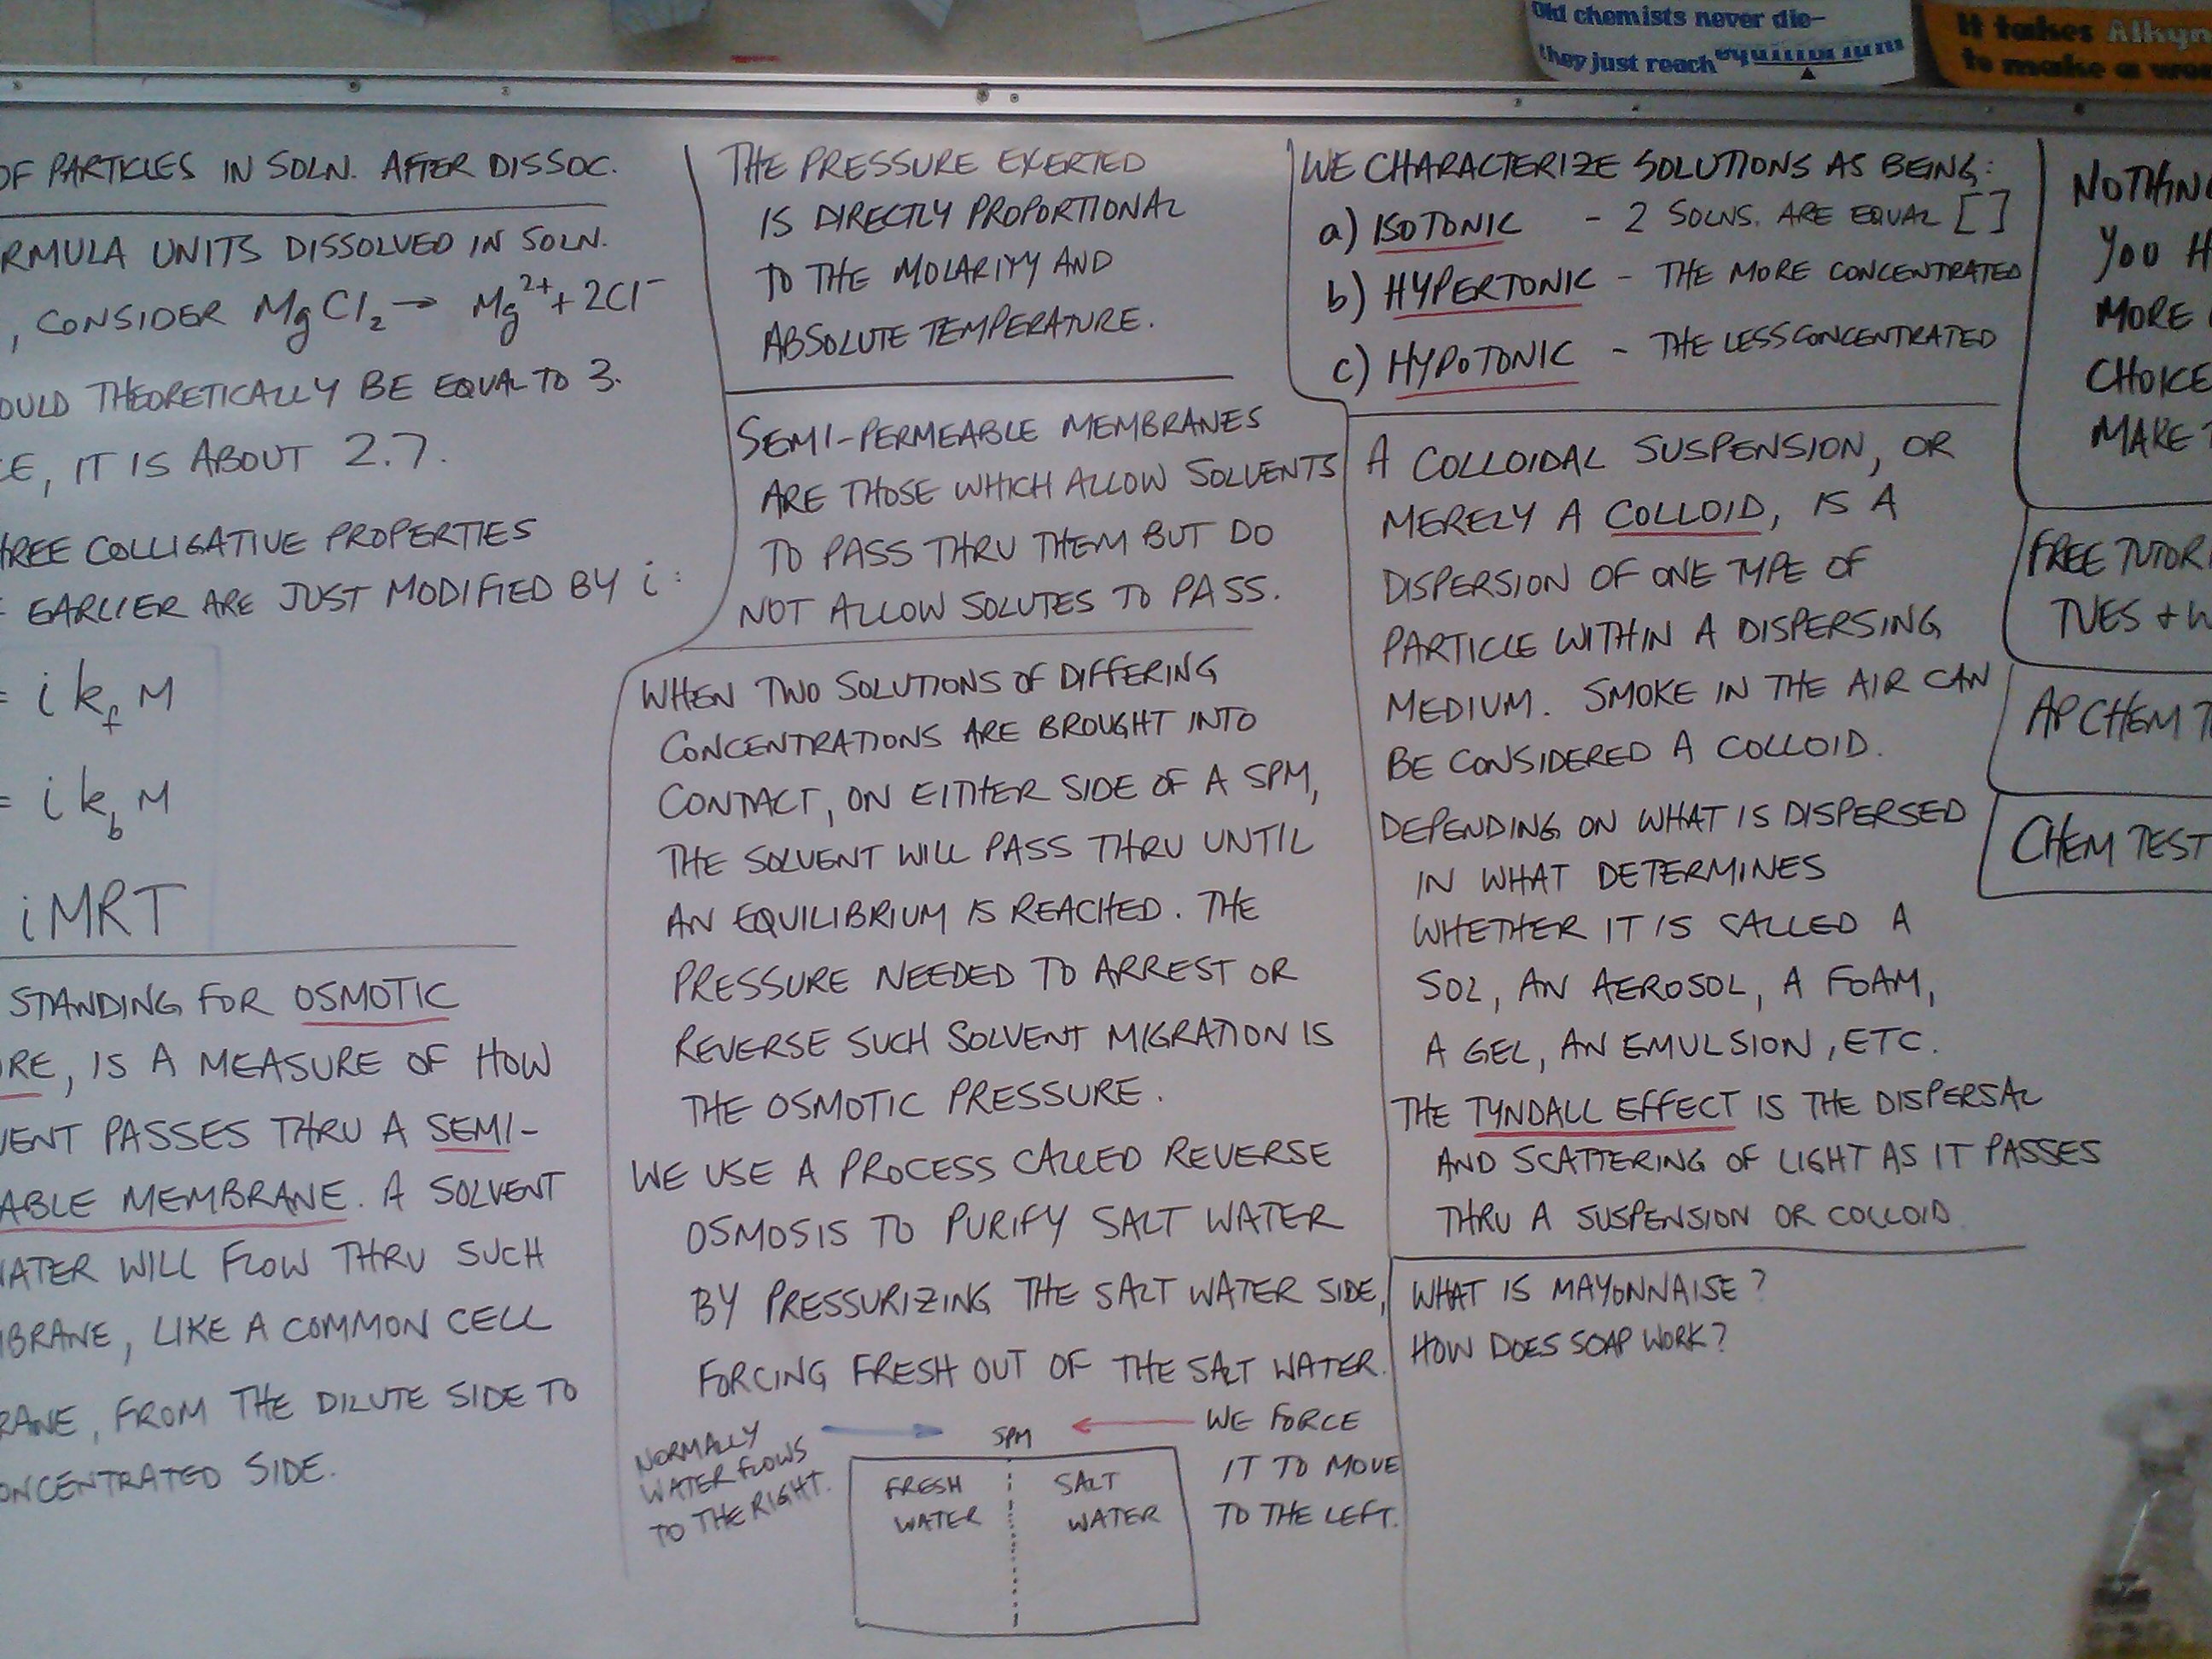 Old chemists never die-
they just reach equilibrium
It takes Alkyn
to make a wor
OF PARTICLES IN SOLN. AFTER DISSOC.
RMULA UNITS DISSOLVED IN SOLN.
, CONSIDER MgCl₂ → Mg²⁺ + 2Cl⁻
OULD THEORETICALLY BE EQUAL TO 3.
CE, IT IS ABOUT 2.7.
HREE COLLIGATIVE PROPERTIES
EARLIER ARE JUST MODIFIED BY i:
= i k_f M
= i k_b M
iMRT
STANDING FOR OSMOTIC
RE, IS A MEASURE OF HOW
VENT PASSES THRU A SEMI-
ABLE MEMBRANE. A SOLVENT
WATER WILL FLOW THRU SUCH
MBRANE, LIKE A COMMON CELL
RANE, FROM THE DILUTE SIDE TO
ONCENTRATED SIDE.
THE PRESSURE EXERTED
IS DIRECTLY PROPORTIONAL
TO THE MOLARITY AND
ABSOLUTE TEMPERATURE.
SEMI-PERMEABLE MEMBRANES
ARE THOSE WHICH ALLOW SOLVENTS
TO PASS THRU THEM BUT DO
NOT ALLOW SOLUTES TO PASS.
WHEN TWO SOLUTIONS OF DIFFERING
CONCENTRATIONS ARE BROUGHT INTO
CONTACT, ON EITHER SIDE OF A SPM,
THE SOLVENT WILL PASS THRU UNTIL
AN EQUILIBRIUM IS REACHED. THE
PRESSURE NEEDED TO ARREST OR
REVERSE SUCH SOLVENT MIGRATION IS
THE OSMOTIC PRESSURE.
WE USE A PROCESS CALLED REVERSE
OSMOSIS TO PURIFY SALT WATER
BY PRESSURIZING THE SALT WATER SIDE,
FORCING FRESH OUT OF THE SALT WATER.
NORMALLY
WATER FLOWS
TO THE RIGHT.
SPM
FRESH
WATER
SALT
WATER
WE FORCE
IT TO MOVE
TO THE LEFT.
WE CHARACTERIZE SOLUTIONS AS BEING:
a) ISOTONIC - 2 SOLNS. ARE EQUAL [ ]
b) HYPERTONIC - THE MORE CONCENTRATED
c) HYPOTONIC - THE LESS CONCENTRATED
A COLLOIDAL SUSPENSION, OR
MERELY A COLLOID, IS A
DISPERSION OF ONE TYPE OF
PARTICLE WITHIN A DISPERSING
MEDIUM. SMOKE IN THE AIR CAN
BE CONSIDERED A COLLOID.
DEPENDING ON WHAT IS DISPERSED
IN WHAT DETERMINES
WHETHER IT IS CALLED A
SOL, AN AEROSOL, A FOAM,
A GEL, AN EMULSION, ETC.
THE TYNDALL EFFECT IS THE DISPERSAL
AND SCATTERING OF LIGHT AS IT PASSES
THRU A SUSPENSION OR COLLOID
WHAT IS MAYONNAISE?
HOW DOES SOAP WORK?
NOTHING
YOU H
MORE
CHOICE
MAKE T
FREE TUTORI
TUES + W
AP CHEM T
CHEM TEST